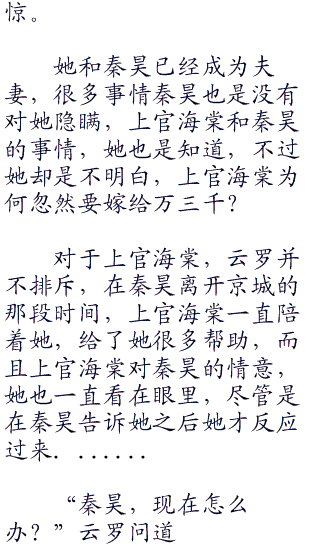 惊。
她和秦昊已经成为夫
妻，很多事情秦昊也是没有
对她隐瞒，上官海棠和秦昊
的事情，她也是知道，不过
她却是不明白，上官海棠为
何忽然要嫁给万三千？
对于上官海棠，云罗并
不排斥，在秦昊离开京城的
那段时间，上官海棠一直陪
着她，给了她很多帮助，而
且上官海棠对秦昊的情意，
她也一直看在眼里，尽管是
在秦昊告诉她之后她才反应
过来．......
“秦昊，现在怎么
办？”云罗问道